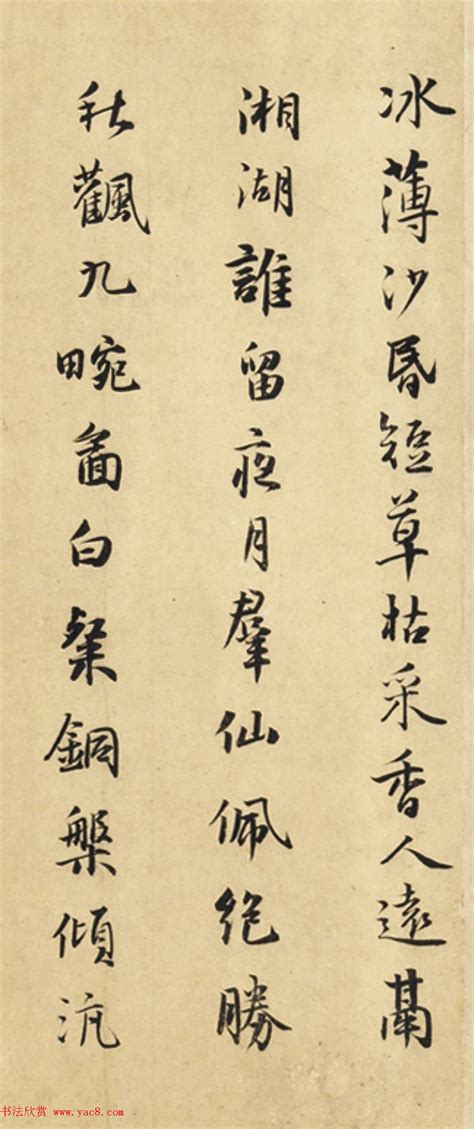 冰薄沙昏短草枯采香人遠鬲
湘湖誰留夜月羣仙佩絕勝
秋飌九畹啚白粲銅槃傾沆
书法欣赏 www.yac8.com